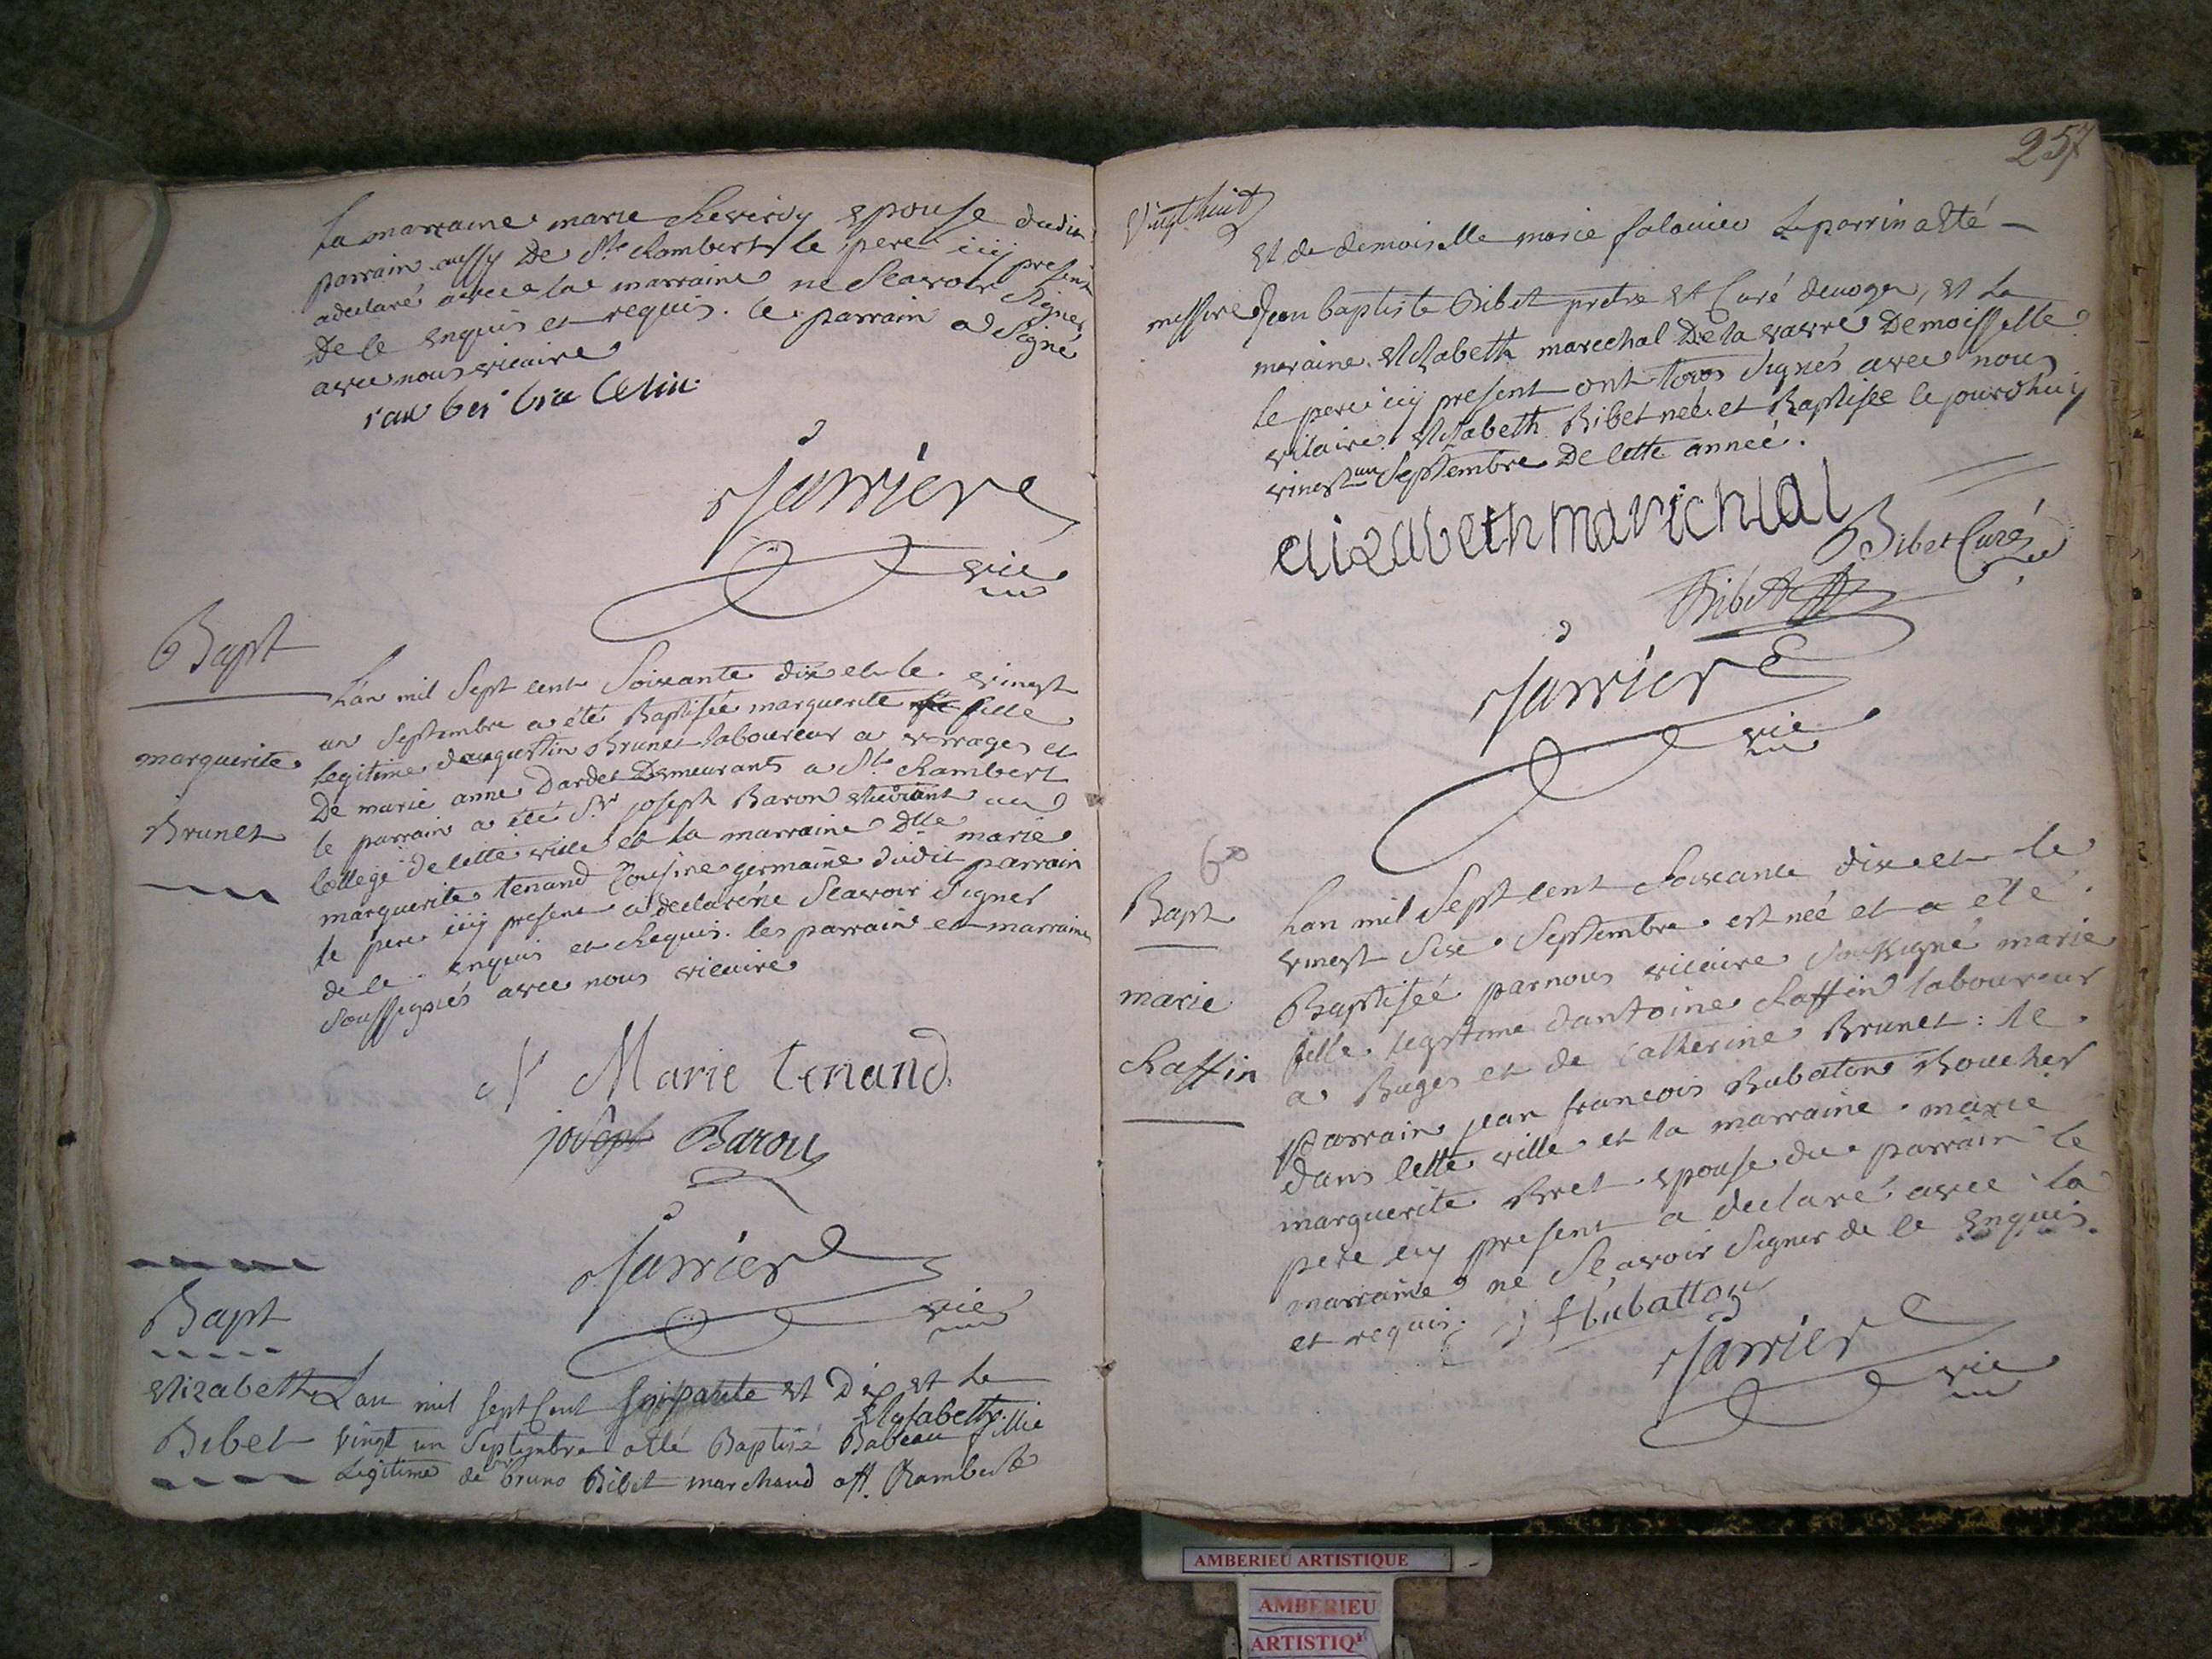 la marraine marie epouse dudit
parrain aussy De St Rambert le pere icy present
a declaré avec la marraine ne scavoir Signer
De ce enquis et requis. le parrain a Signé
avec nous vicaire
Jarriere
vic
Bapt
marguerite
Brunet
L'an mil Sept cent Soixante dix et le vingt
un Septembre a été Baptisée marguerite fille
legitime daugustin Brunet laboureur a vorages et
De marie anne Dardet Demeurants a St Rambert
le parrain a été Sr joseph Baron etudiant au
College de cette ville et la marraine Dlle marie
marguerite tenand Cousine germaine dudit parrain
le pere icy present a declaré ne Scavoir Signer
de ce enquis et Requis. les parrain et marraine
Soussignés avec nous vicaire
Marie tenand
joseph Baron
Jarriere
vic
Bapt
Elizabeth
Bibet
Lan mil sept Cent Soixante et Dix et le
Elysabeth
vingt un Septembre a été Baptisé Babeau fillie
Legitime de bruno Bibet marchand a St. Rambert
257
vingt huit
et de demoiselle marie falavieu Le parrin a été
messire Jean baptiste Bibet pretre et Curé de
maraine. Elizabeth marechal De la vavre Demoisselle
le pere icy present ont tous signés avec nous
vicaire. Elizabeth Bibet née et Baptisée le jourdhuy
vingt un Septembre De cette année.
elizabeth marichial
Bibet Curé
Bibet
Jarriere
vic
60
Bapt
marie
Raffin
Lan mil Sept cent Soixante dix et le
vingt Six Septembre est née et a été
Baptisée par nous vicaire Soussigné marie
fille legitime dantoine Raffin laboureur
a Buges et de Catherine Brunet: le
parrain jean francois Bubaton Boucher
dans cette ville et la marraine marie
marguerite Bret epouse du parrain le
pere icy present a declaré avec la
marraine ne Sçavoir Signer de ce Enquis
et requis.
Jarriere
vic
AMBERIEU ARTISTIQUE
AMBERIEU
ARTISTIQ